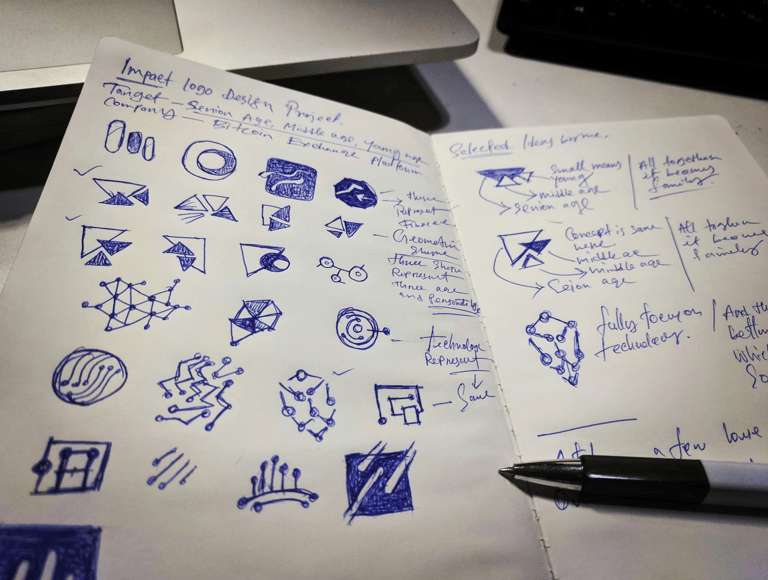 Impact logo Design Project.
Target — Senior Age, Middle age, Young age
Company — Bitcoin Exchange Platform
three
Represent
Finance
Geometric
Shape
three shape
Represent
three age
and
technology
Represent
Same
Selected Ideas
Small means
young
middle age
Senior age
All together
it becomes
family.
Concept is same
here
middle age
Senior age
All together
it
fully focus on
technology.
And
Which
So
a few